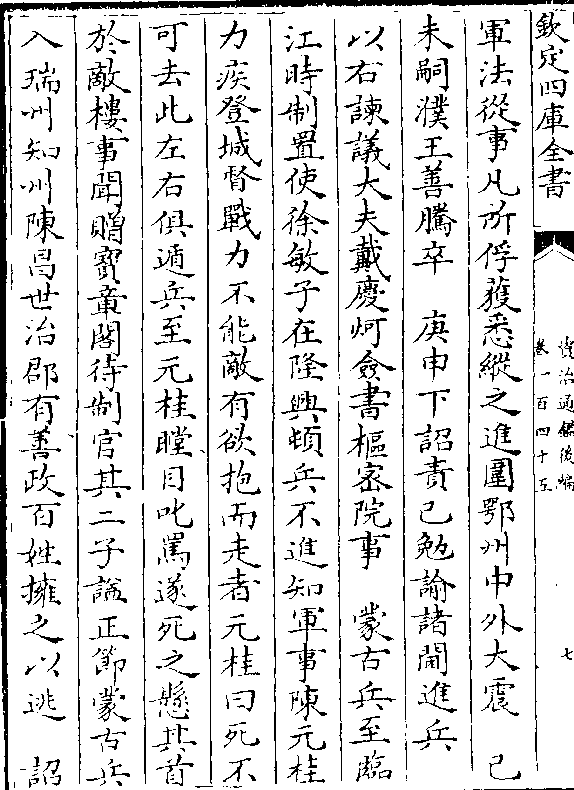 欽定四庫全書
資治通鑑後編
卷一百四十五
七
軍法從事凡所俘獲悉縱之進圍鄂州中外大震　己
未嗣濮王善騰卒　庚申下詔責已勉諭諸閫進兵
以右諫議大夫戴慶炣僉書樞密院事　蒙古兵至臨
江時制置使徐敏子在隆興頓兵不進知軍事陳元桂
力疾登城督戰力不能敵有欲抱而走者元桂曰死不
可去此左右俱遁兵至元桂瞠目叱罵遂死之懸其首
於敵樓事聞贈寶章閣待制官其二子諡正節蒙古兵
入瑞州知州陳昌世治郡有善政百姓擁之以逃　詔